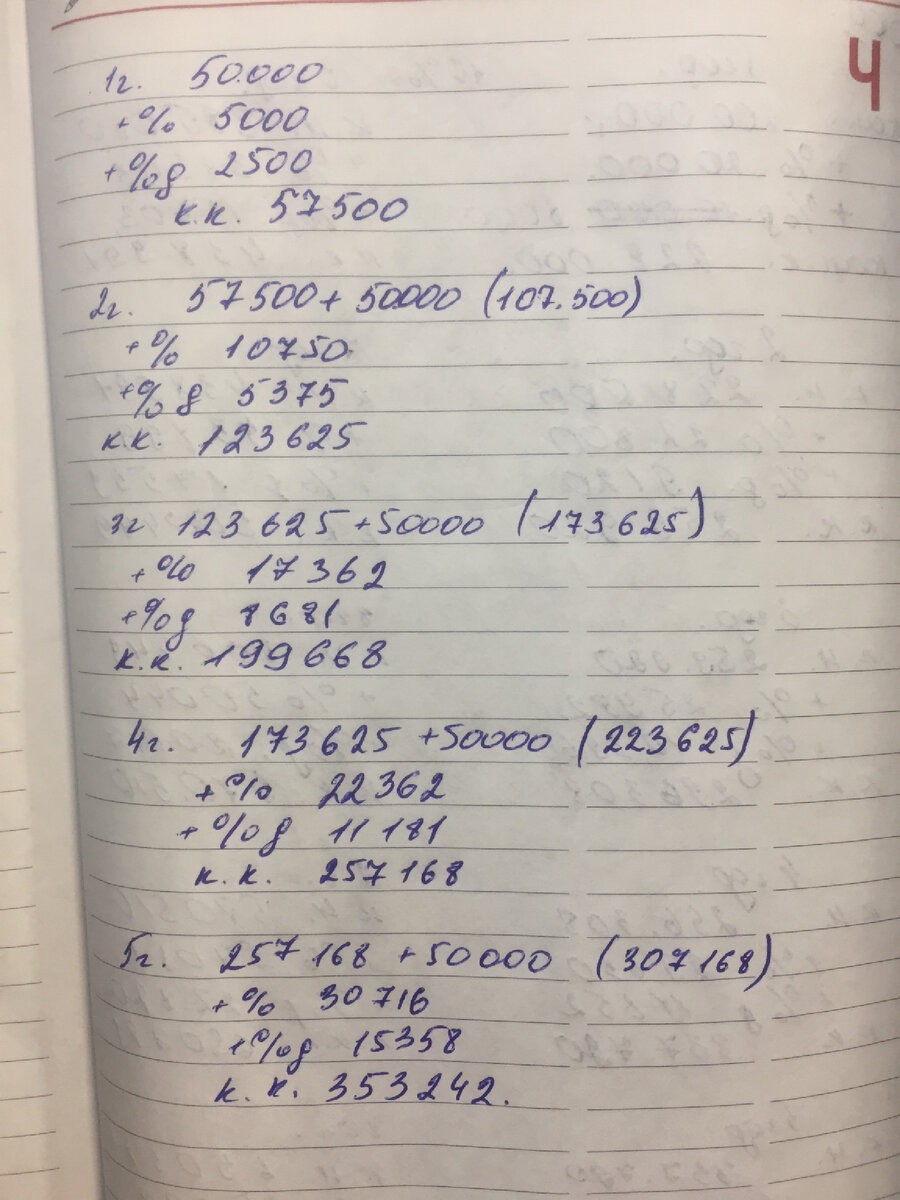 Ч
1г. 50.000
+% 5000
+%д 2500
к.к. 57500
2г. 57500 + 50.000 (107.500)
+% 10750
+%д 5375
к.к. 123625
3г 123625 +50000 (173625)
+% 17362
+%д 8681
к.к. 199668
4г. 173625 +50000 (223625)
+% 22362
+%д 11181
к.к. 257168
5г. 257168 +50000 (307168)
+% 30716
+%д 15358
к.к. 353242.